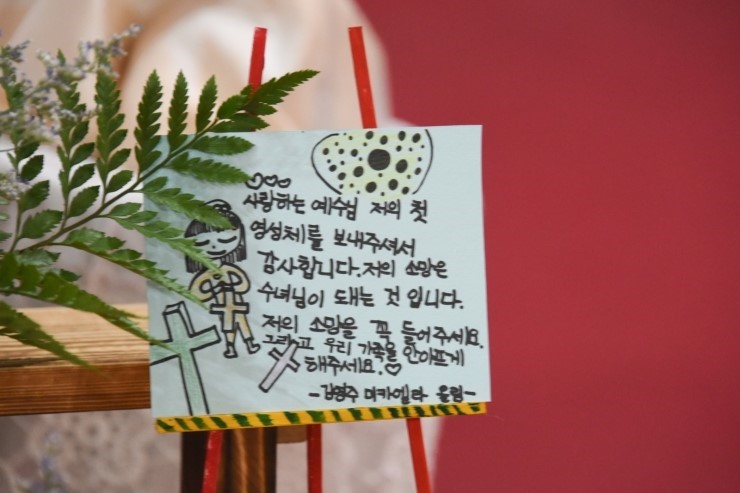 사랑하는 예수님 저의 첫
영성체를 보내주셔서
감사합니다. 저의 소망은
수녀님이 돼는 것 입니다.
저의 소망을 꼭 들어주세요.
그리고 우리 가족을 안아프게
해주세요.♡
-김영주 미카엘라 올림-